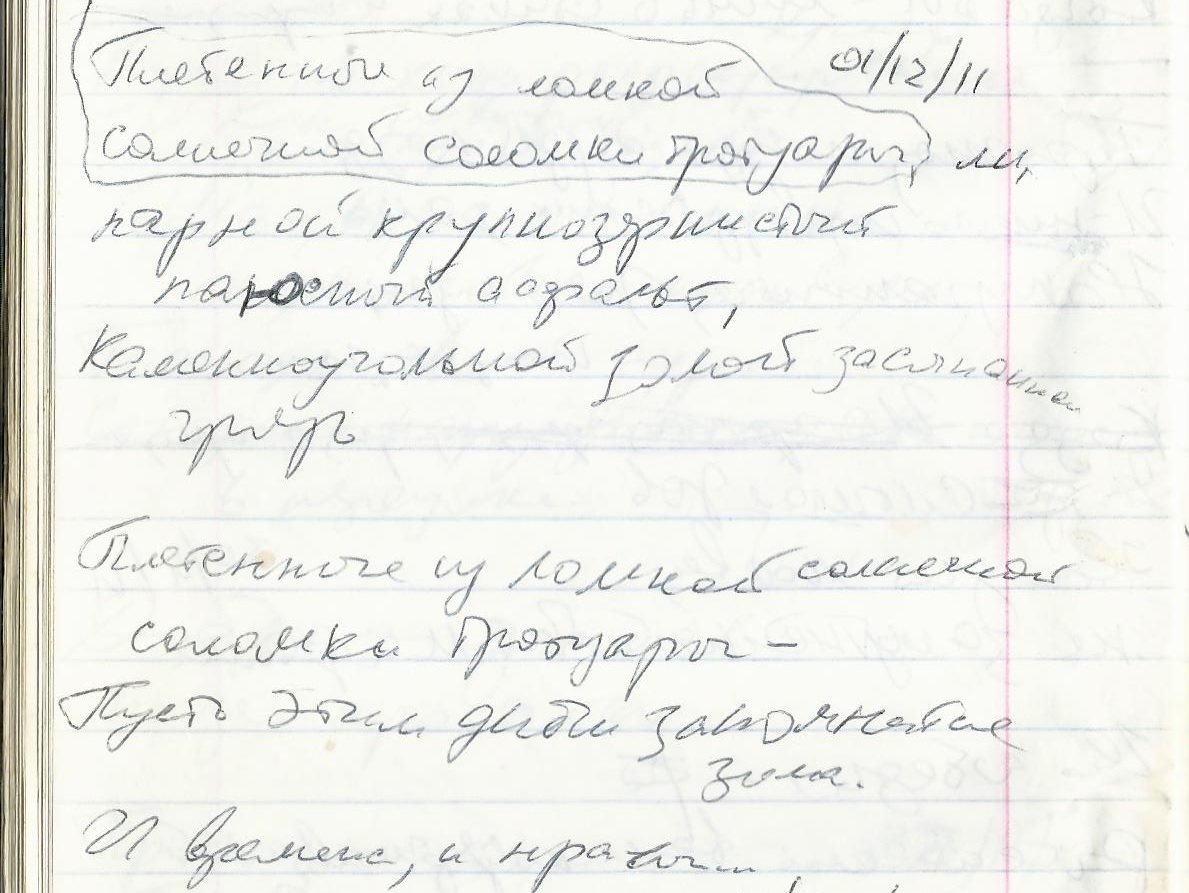 Плетенные из ломкой 01/12/11
солнечной соломки тротуары, ли,
парной крупнозернистый
пар осный асфальт,
Каменноугольной золой засыпанная
грязь
Плетенные из ломкой солнечной
соломки тротуары –
Пусть этим детям запомнятся
зима.
И времена, и нравы